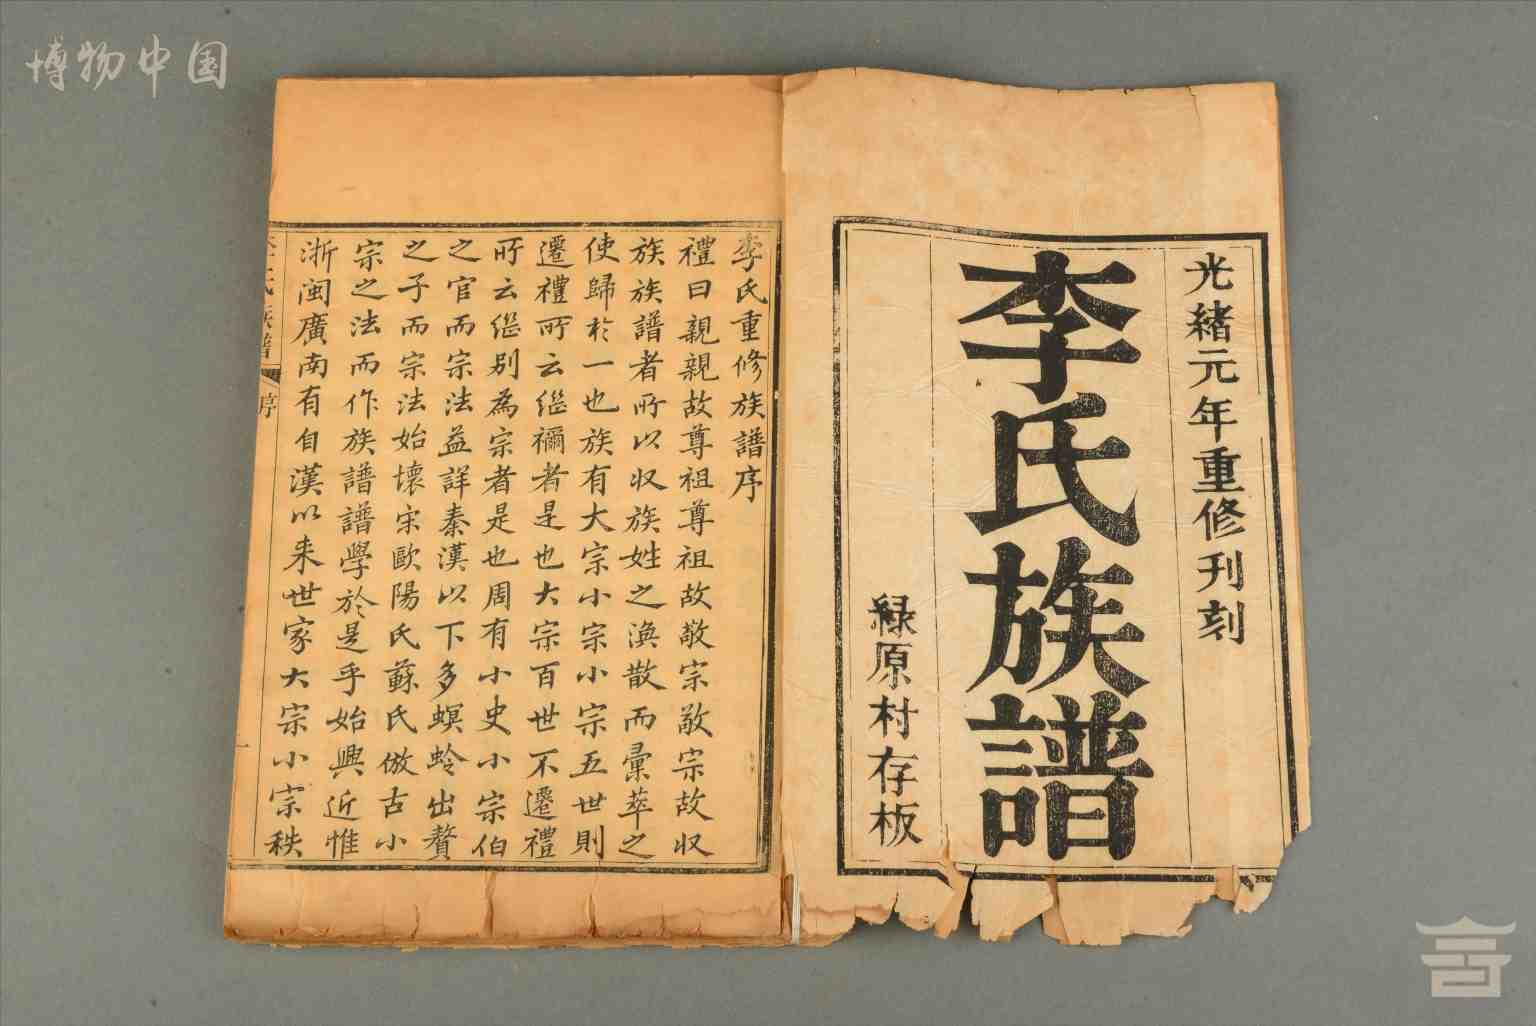 博物中国
光緒元年重修刊刻
李氏族譜
緑原村存板
李氏重修族譜序
禮曰親親故尊祖尊祖故敬宗敬宗故収
族族譜者所以収族姓之渙散而彙萃之
使歸於一也族有大宗小宗小宗五世則
遷禮所云継禰者是也大宗百世不遷禮
所云継别為宗者是也周有小史小宗伯
之官而宗法益詳秦漢以下多螟蛉出贅
之子而宗法始壞宋歐陽氏蘇氏倣古小
宗之法而作族譜譜學於是乎始興近惟
浙閩廣南有自漢以来世家大宗小宗秩
李氏族譜 序 一